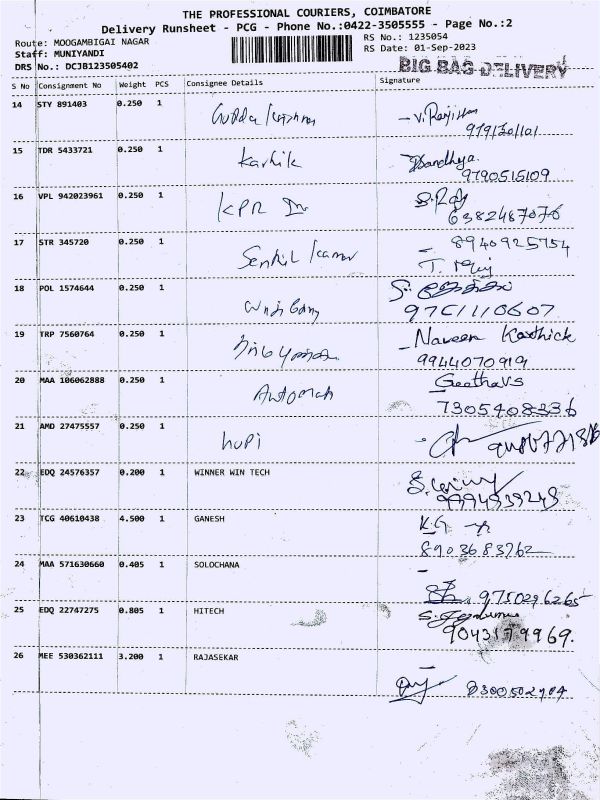 THE PROFESSIONAL COURIERS, COIMBATORE
Delivery Runsheet - PCG - Phone No.:0422-3505555 - Page No.:2
Route: MOOGAMBIGAI NAGAR
RS No.: 1235054
Staff: MUNIYANDI
RS Date: 01-Sep-2023
DRS No.: DCJB123505402
BIG BAG DELIVERY
S No Consignment No Weight PCS Consignee Details Signature
14 STY 891403 0.250 1
15 TDR 5433721 0.250 1 Karthik Sandhya.
9790515109
16 VPL 942023961 0.250 1 KPR
6382487076
17 STR 345720 0.250 1 Senthil Kumar 8940925754
18 POL 1574644 0.250 1
9761110607
19 TRP 7560764 0.250 1 Naveen Karthick
9944070919
20 MAA 106062888 0.250 1 Geetha VS
7305408336
21 AMD 27475557 0.250 1 hupi
22 EDQ 24576357 0.200 1 WINNER WIN TECH
9994539248
23 TCG 40610438 4.500 1 GANESH K.G
8903683762
24 MAA 571630660 0.405 1 SOLOCHANA
9750296265
25 EDQ 22747275 0.805 1 HITECH
26 MEE 530362111 3.200 1 RAJASEKAR